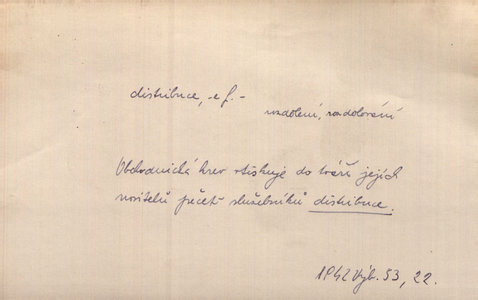 distribuce, -e f. -
rozdělení, rozdělování
Obchodnická krev vtiskuje do tváří jejich
nositelů pečeť služebníků distribuce.
1942 Výb. 53, 22.